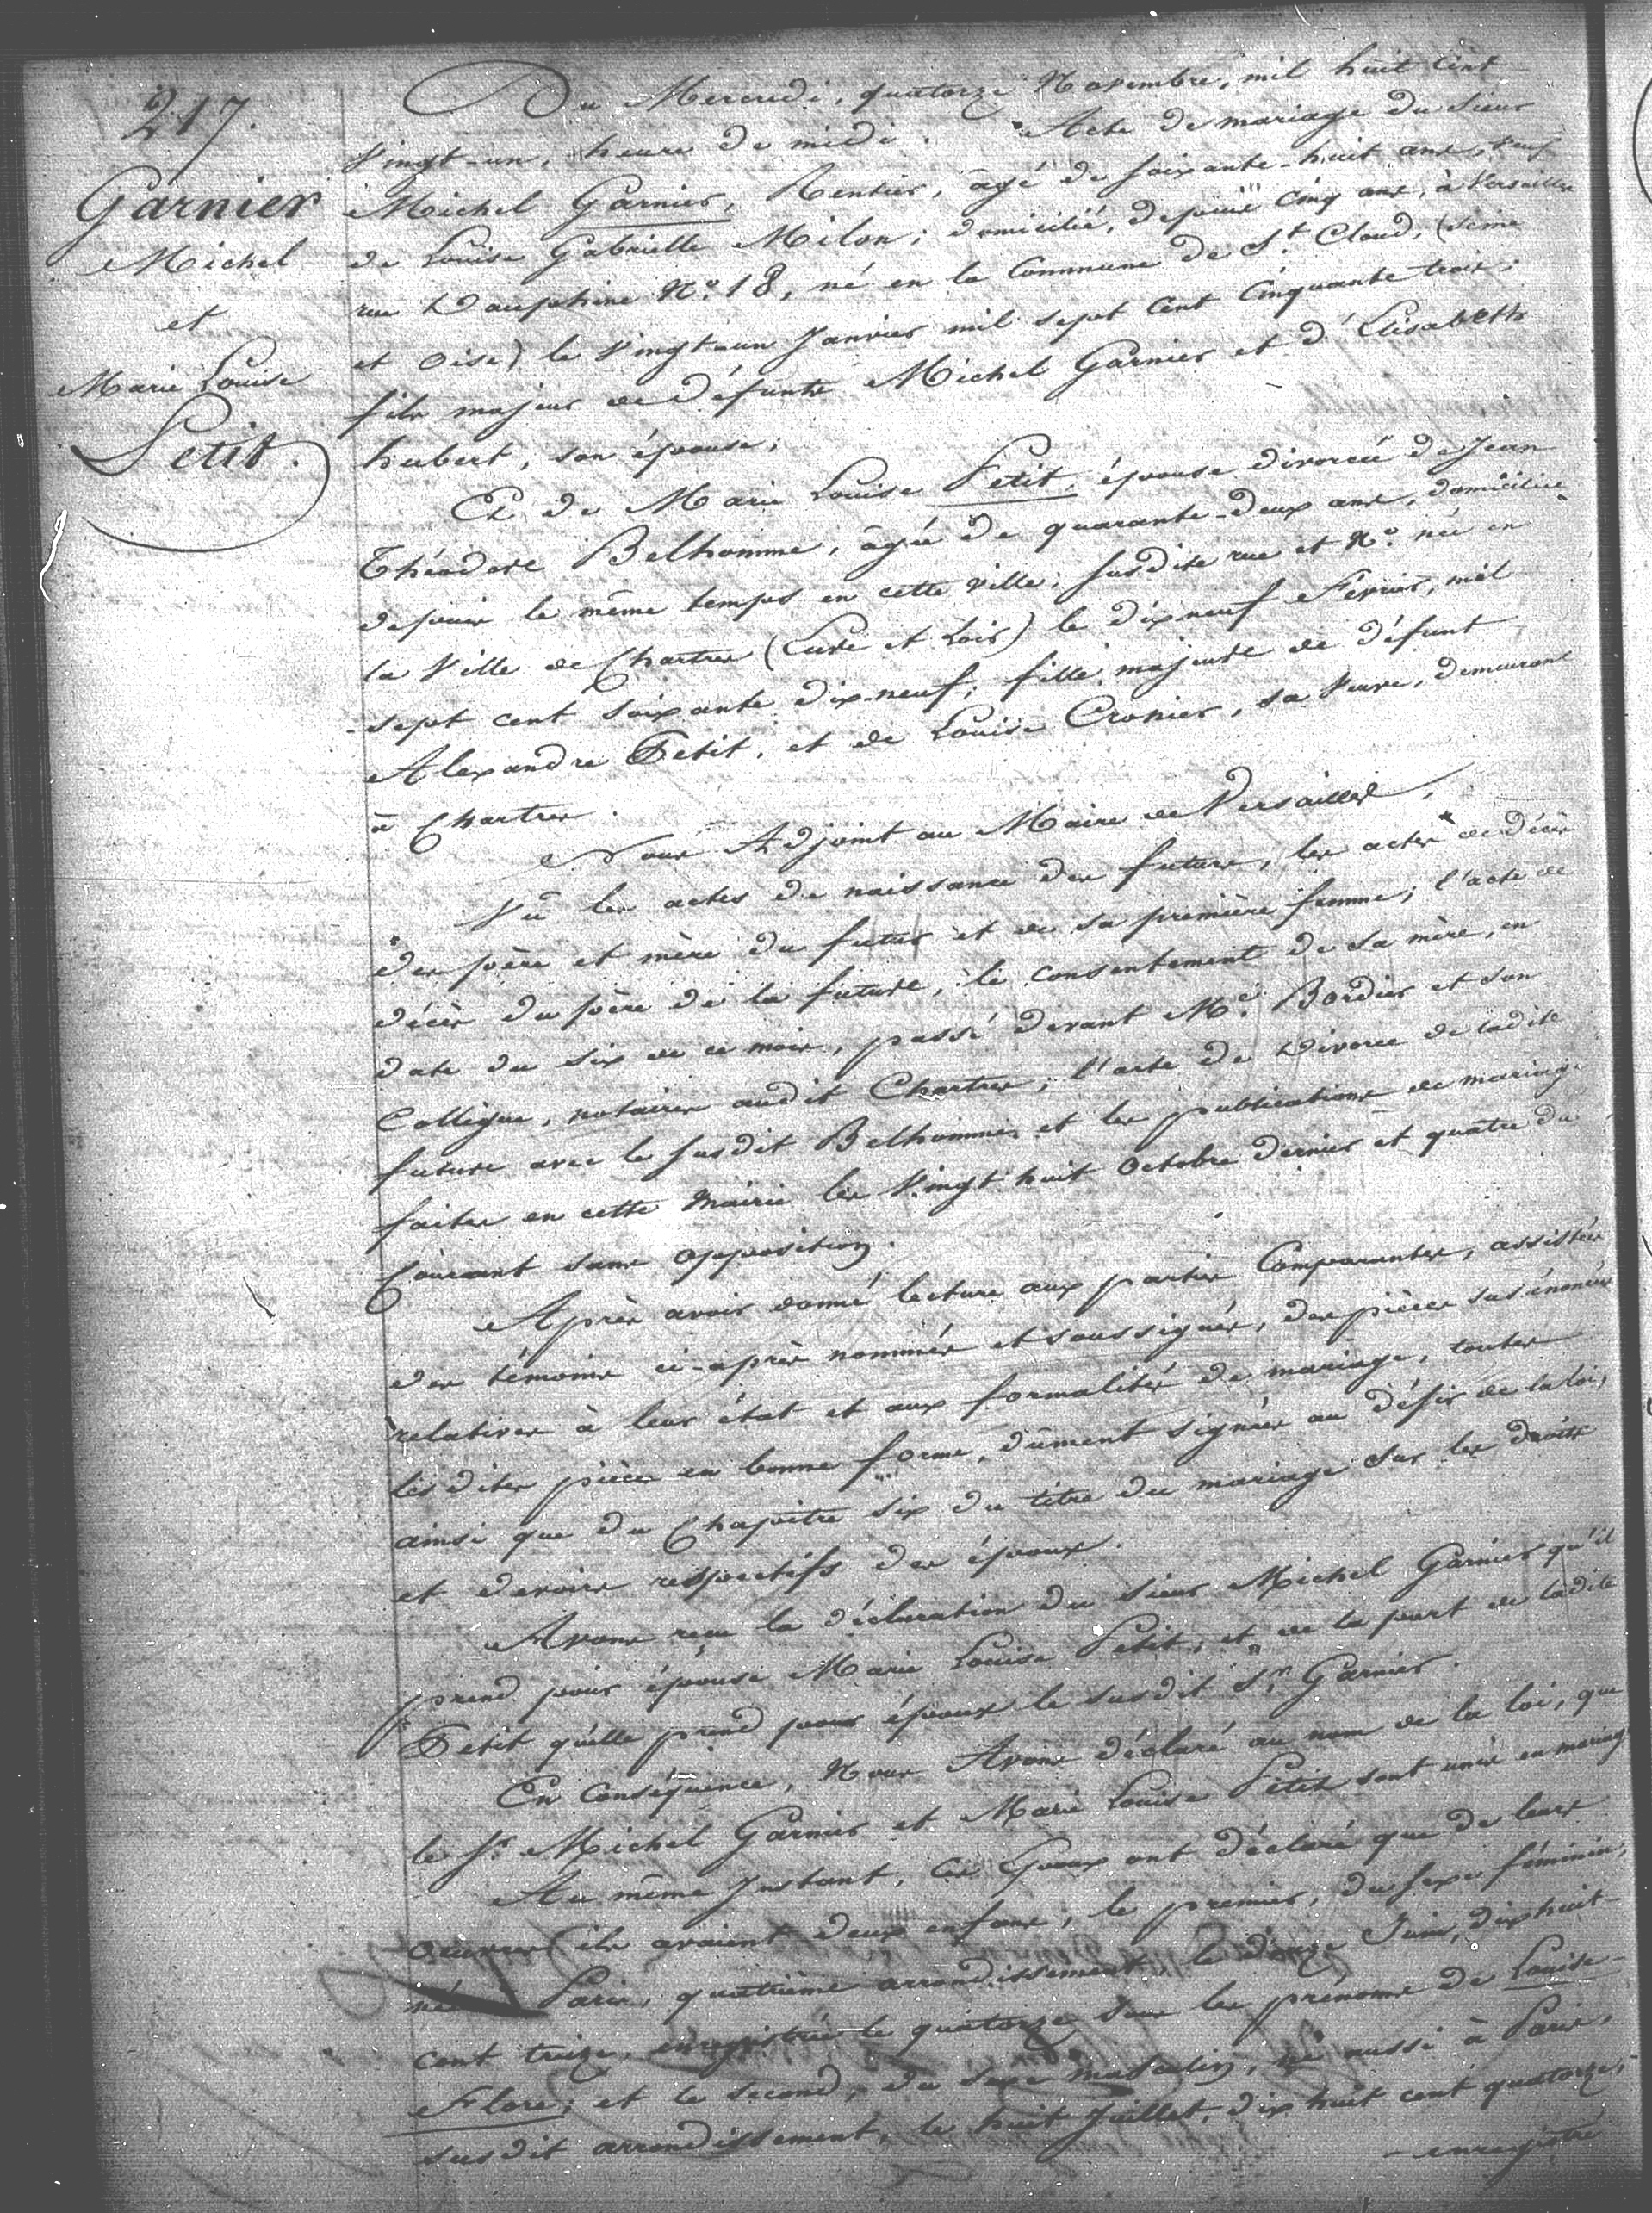 217.
Garnier
Michel
et
Marie Louise
Petit.
Du Mercredi, quatorze Novembre, mil huit Cent
Vingt-un, heure de midi. Acte de mariage du Sieur
Michel Garnier, Rentier, âgé de soixante-huit ans, veuf
de Louise Gabrielle Milon; domicilié, depuis cinq ans, à Versailles
rue Dauphine N.º 18, né en la Commune de St. Cloud, (Seine
et Oise) le Vingt-un Janvier mil sept Cent Cinquante trois;
fils majeur de défunts Michel Garnier et d'Elisabeth
hubert, son épouse;
Et de Marie Louise Petit, épouse divorcée de Jean
Théodore Belhomme, âgée de quarante-deux ans, domiciliée
depuis le même temps en cette ville, susdite rue et N.º née en
la Ville de Chartres (Eure et Loir) le dix neuf Février, mil
sept cent soixante dix-neuf; fille majeure de défunt
Alexandre Petit, et de Louise Cronier, sa Veuve, demeurant
à Chartres.
Nous Adjoint au Maire de Versailles,
Vû les actes de naissance des futurs, les actes de décès
des père et mère du futur et de sa première femme; l'acte de
décès du père de la future, le consentement de sa mère, en
date du six de ce mois, passé devant Me. Bordier et son
Collègue, notaires audit Chartres; l'acte de Divorce de ladite
future avec le susdit Belhomme, et les publications de mariage
faites en cette Mairie les Vingt huit Octobre dernier et quatre du
Courant sans opposition.
Après avoir donné lecture aux parties Comparantes, assistées
des témoins ci-après nommés et soussignés, des pièces susénoncées
relatives à leur état et aux formalités de mariage, toutes
lesdites pièces en bonne forme, dûment signées au désir de la loi,
ainsi que du Chapitre six du titre du mariage sur les droits
et devoirs respectifs des époux.
Avons reçu la déclaration du Sieur Michel Garnier qu'il
prend pour épouse Marie Louise Petit, et de la part de ladite
Petit qu'elle prend pour époux le susdit Sr. Garnier.
En Conséquence, Nous Avons déclaré au nom de la loi, que
le Sr. Michel Garnier et Marie Louise Petit sont unis en mariage
Au même Instant, Ces Epoux ont déclaré que de leurs
oeuvres ils avaient deux enfans, le premier, du sexe féminin,
né Paris, quatrième arrondissement, le douze Juin, dix huit
cent treize, enregistrée le quatorze sous les prénoms de Louise
Flore; et le second, du sexe masculin, né aussi à Paris,
susdit arrondissement, le huit Juillet, dix huit cent quatorze,
- enregistré